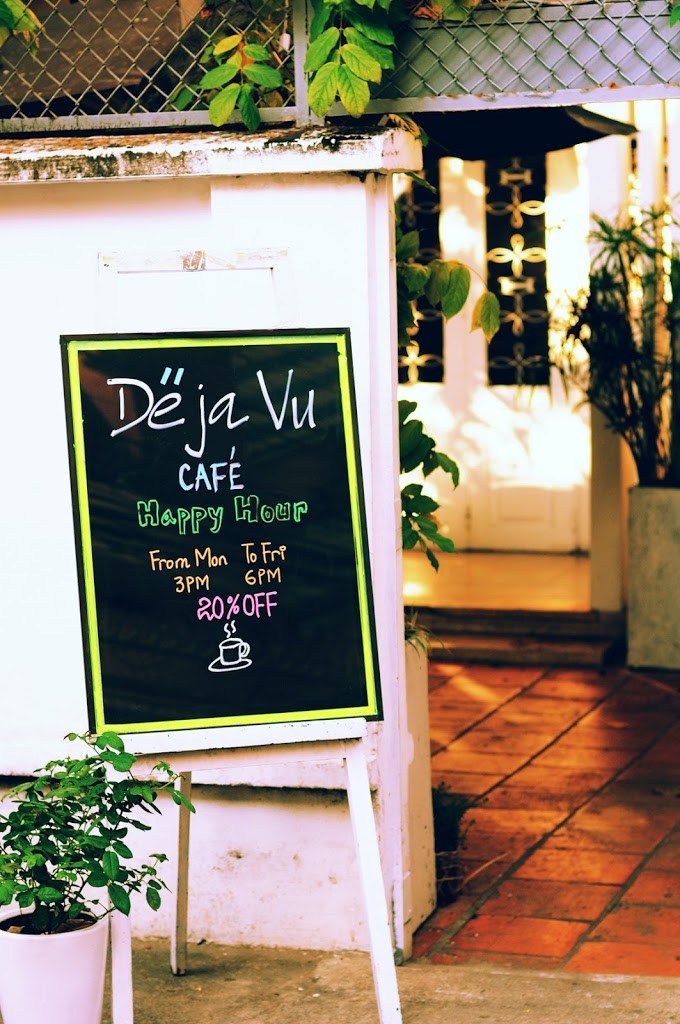 Dëja Vu
CAFÉ
Happy Hour
From Mon To Fri
3PM 6PM
20% OFF